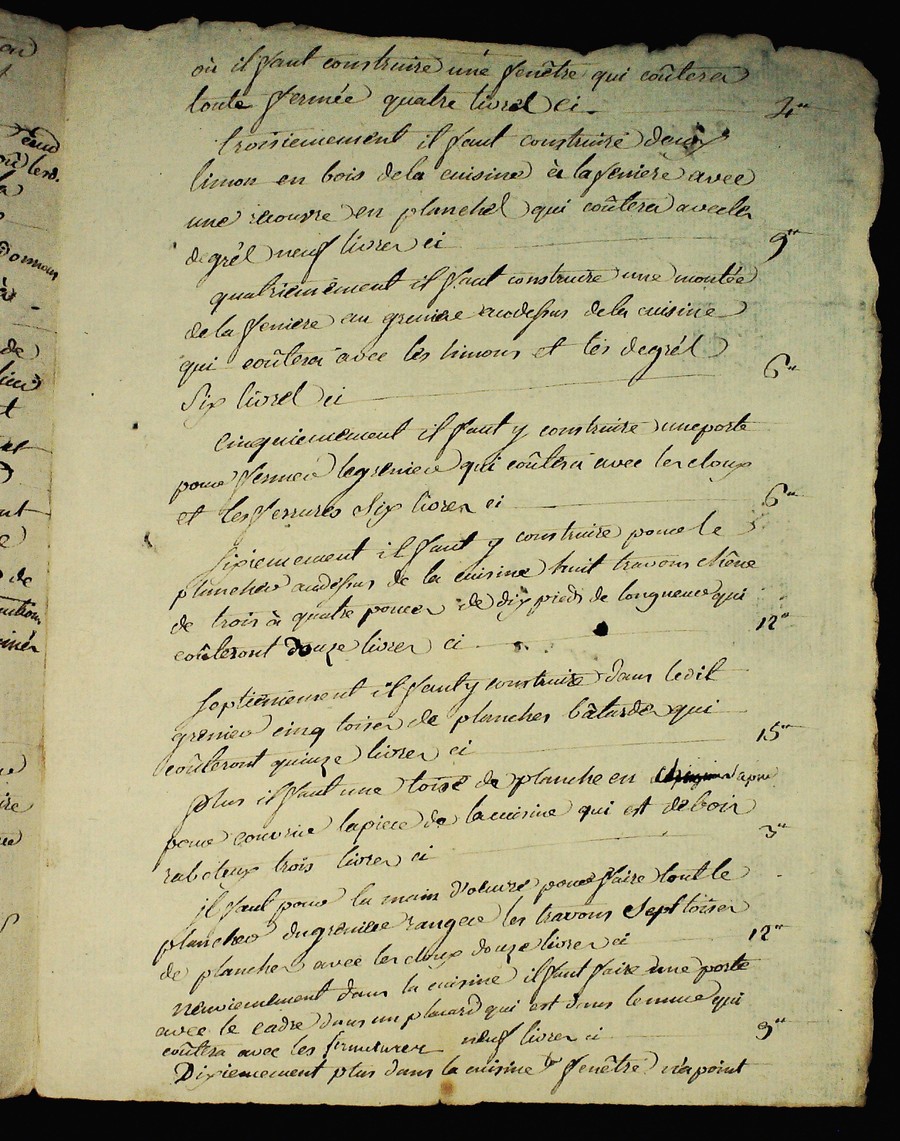 où il faut construire une fenêtre qui coûtera
toute fermée quatre livres ci 4"
troisiemement il faut construire deux
limon en bois dela cuisine à lafeniere avec
une recouvre en planchel qui coûtera avecles
degrél neuf livres ci 9"
quatriemement il faut construire une montée
de la feniere au greniere audessus dela cuisine
qui coûtera avec les limons et les degrél
six livrel ci 6"
cinquiemement il faut y construire uneporte
pour fermer legrenier qui coûtera avec les cloux
et les ferrures six livres ci 6"
sixiemement il faut y construire pour le
plancher audessus de la cuisine huit travons chêne
de trois à quatre pouces de dix pieds de longueur qui
coûteront douze livres ci 12"
septiemement il faut y construire dans ledit
grenier cinq toises de planches bâtardes qui
coûteront quinze livres ci 15"
plus il faut une toise de planche en
pour couvrir lapiece de la cuisine qui est deboir
raboteux trois livres ci 3"
il faut pour la main d'oeuvre pour faire tout le
plancher dugreniere rangere les travons sept toises
de planches avec les cloux douze livres ci 12"
neuviemement dans la cuisine il faut faire une porte
avec le cadre dans un placard qui est dans lemur qui
coûtera avec les fermetures neuf livres ci 9"
Dixiemement plus dans la cuisine la fenêtre n'a point